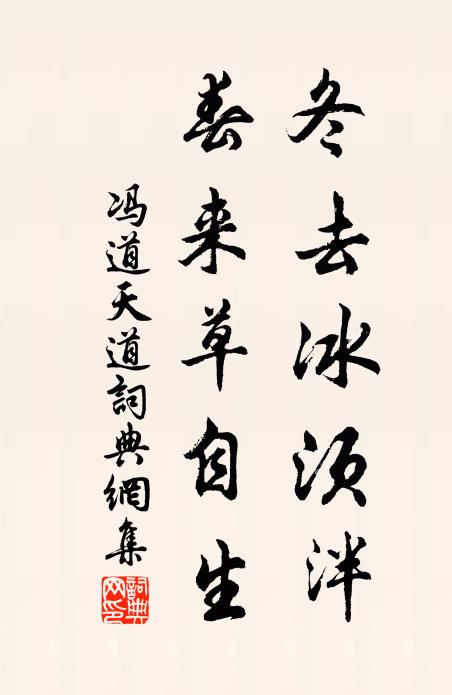 冬去冰须泮
春来草自生
冯道天道詞典網集
詞典网印